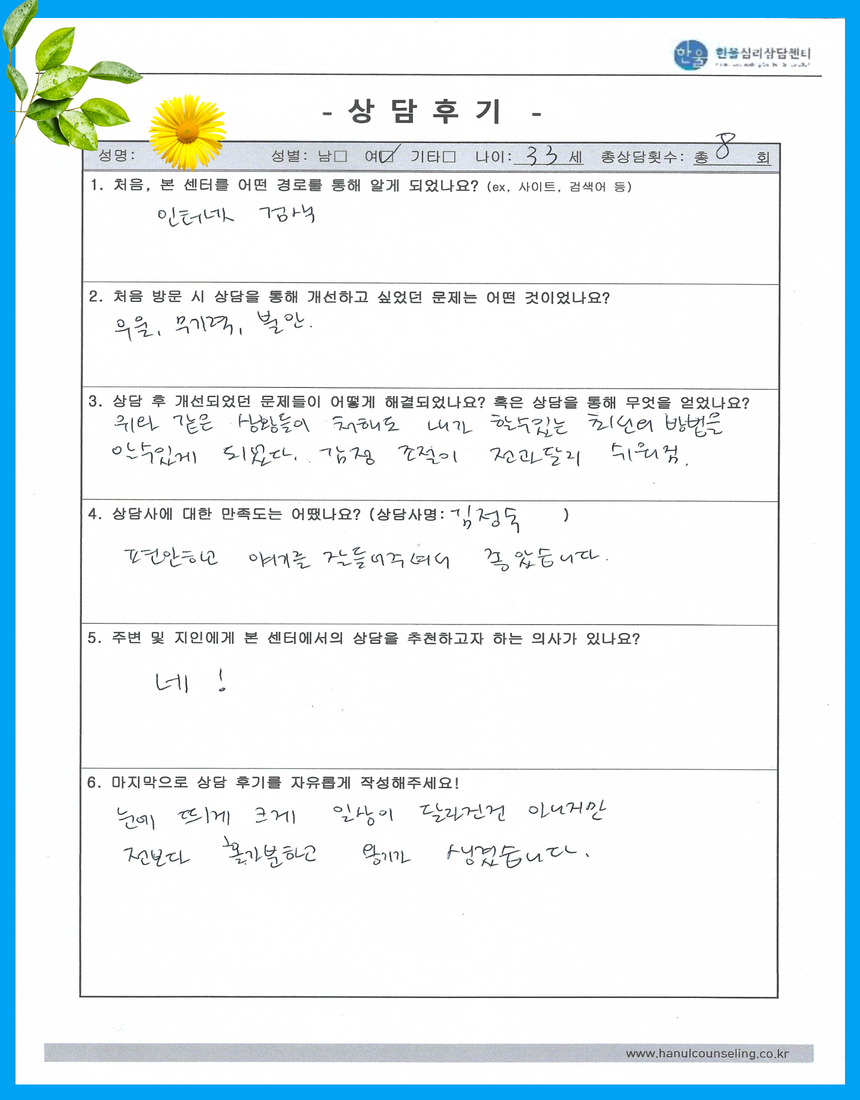 한울 한울심리상담센터
- 상 담 후 기 -
성명: 성별: 남□ 여☑ 기타□ 나이: 33 세 총상담횟수: 총 8 회
1. 처음, 본 센터를 어떤 경로를 통해 알게 되었나요? (ex, 사이트, 검색어 등)
인터네 검색
2. 처음 방문 시 상담을 통해 개선하고 싶었던 문제는 어떤 것이었나요?
우울, 무기력, 불안.
3. 상담 후 개선되었던 문제들이 어떻게 해결되었나요? 혹은 상담을 통해 무엇을 얻었나요?
위와 같은 상황들이 처해도 내가 할수있는 최선의 방법을
알수있게 되었다. 감정 조절이 전과달리 쉬워짐.
4. 상담사에 대한 만족도는 어땠나요? (상담사명: 김정숙 )
편안하고 얘기를 잘들어주셔서 좋았습니다.
5. 주변 및 지인에게 본 센터에서의 상담을 추천하고자 하는 의사가 있나요?
네 !
6. 마지막으로 상담 후기를 자유롭게 작성해주세요!
눈에 띄게 크게 일상이 달라진건 아니지만
전보다 홀가분하고 용기가 생겼습니다.
www.hanulcounseling.co.kr